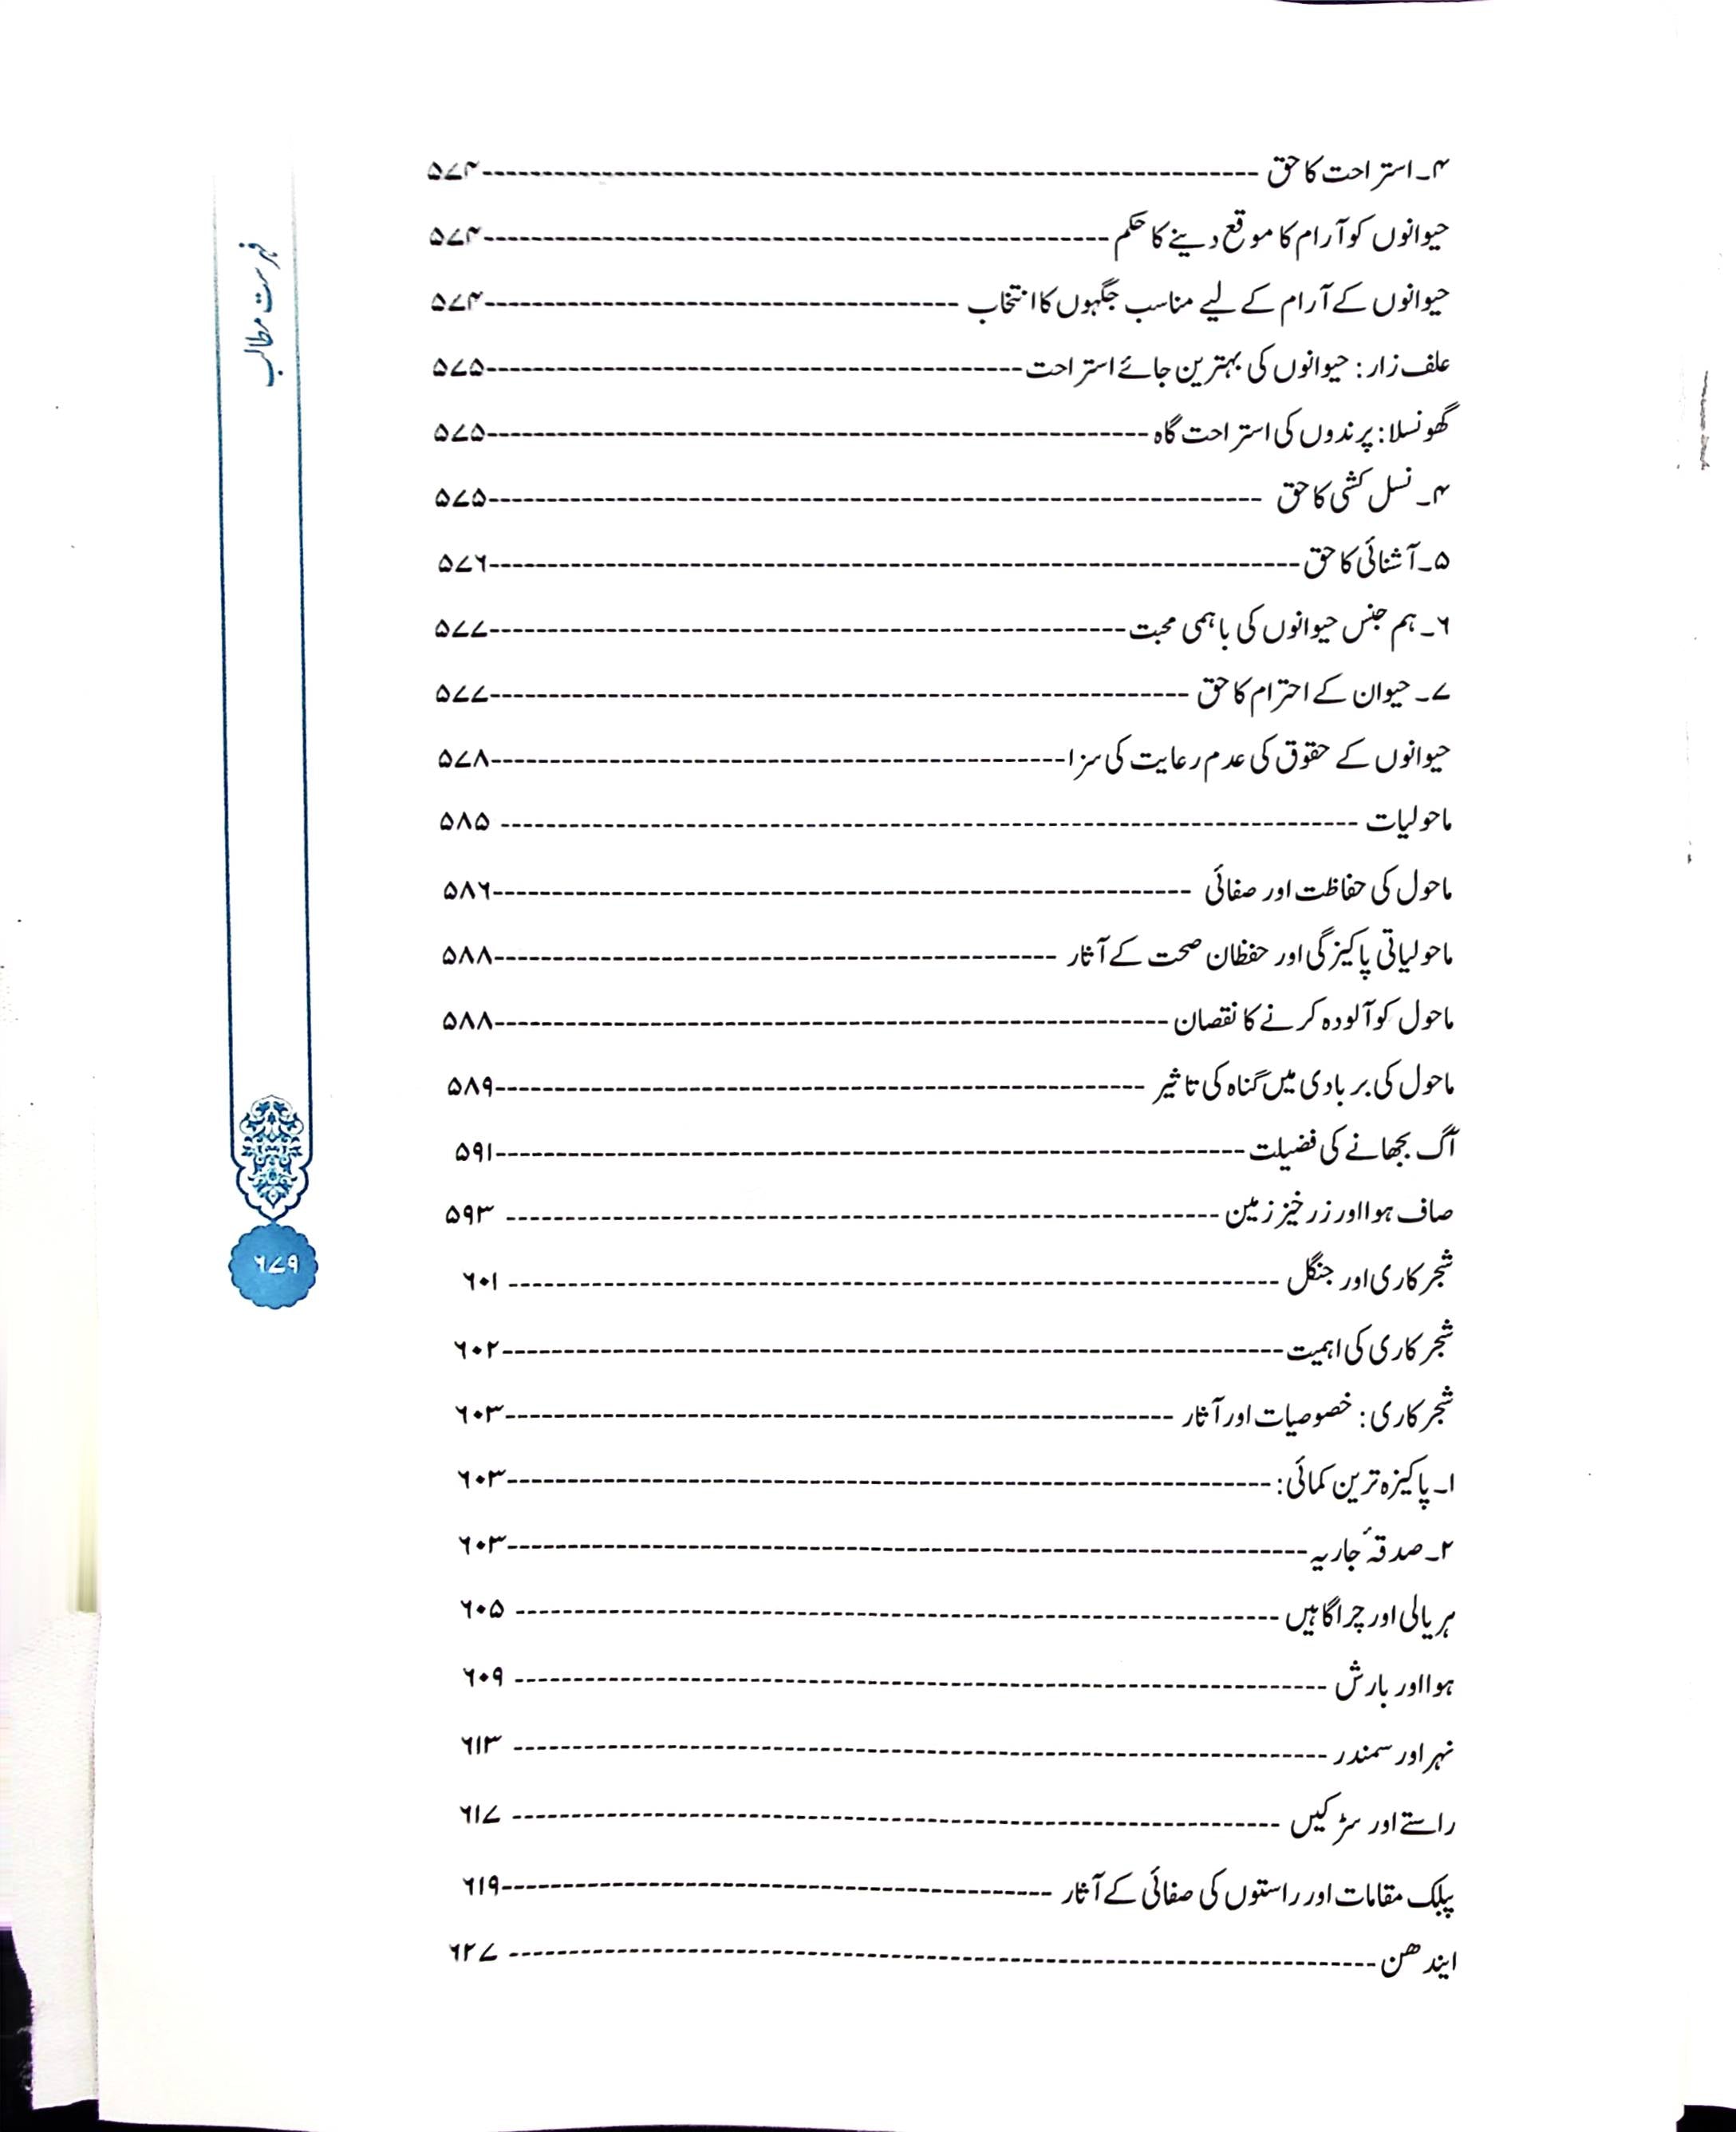 ۴۔ استراحت کا حق ---------- ۵۷۴
حیوانوں کو آرام کا موقع دینے کا حکم ---------- ۵۷۴
حیوانوں کے آرام کے لیے مناسب جگہوں کا انتخاب ---------- ۵۷۴
علف زار: حیوانوں کی بہترین جائے استراحت ---------- ۵۷۵
گھونسلا: پرندوں کی استراحت گاہ ---------- ۵۷۵
۴۔ نسل کشی کا حق ---------- ۵۷۵
۵۔ آشنائی کا حق ---------- ۵۷۶
۶۔ ہم جنس حیوانوں کی باہمی محبت ---------- ۵۷۷
۷۔ حیوان کے احترام کا حق ---------- ۵۷۷
حیوانوں کے حقوق کی عدم رعایت کی سزا ---------- ۵۷۸
ماحولیات ---------- ۵۸۵
ماحول کی حفاظت اور صفائی ---------- ۵۸۶
ماحولیاتی پاکیزگی اور حفظان صحت کے آثار ---------- ۵۸۸
ماحول کو آلودہ کرنے کا نقصان ---------- ۵۸۸
ماحول کی بربادی میں گناہ کی تاثیر ---------- ۵۸۹
آگ بجھانے کی فضیلت ---------- ۵۹۱
صاف ہوا اور زرخیز زمین ---------- ۵۹۳
شجر کاری اور جنگل ---------- ۶۰۱
شجر کاری کی اہمیت ---------- ۶۰۲
شجر کاری: خصوصیات اور آثار ---------- ۶۰۳
۱۔ پاکیزہ ترین کمائی: ---------- ۶۰۳
۲۔ صدقۂ جاریہ ---------- ۶۰۳
ہریالی اور چراگاہیں ---------- ۶۰۵
ہوا اور بارش ---------- ۶۰۹
نہر اور سمندر ---------- ۶۱۳
راستے اور سڑکیں ---------- ۶۱۷
پبلک مقامات اور راستوں کی صفائی کے آثار ---------- ۶۱۹
ایندھن ---------- ۶۲۷
فہرست مطالب
۶۷۹